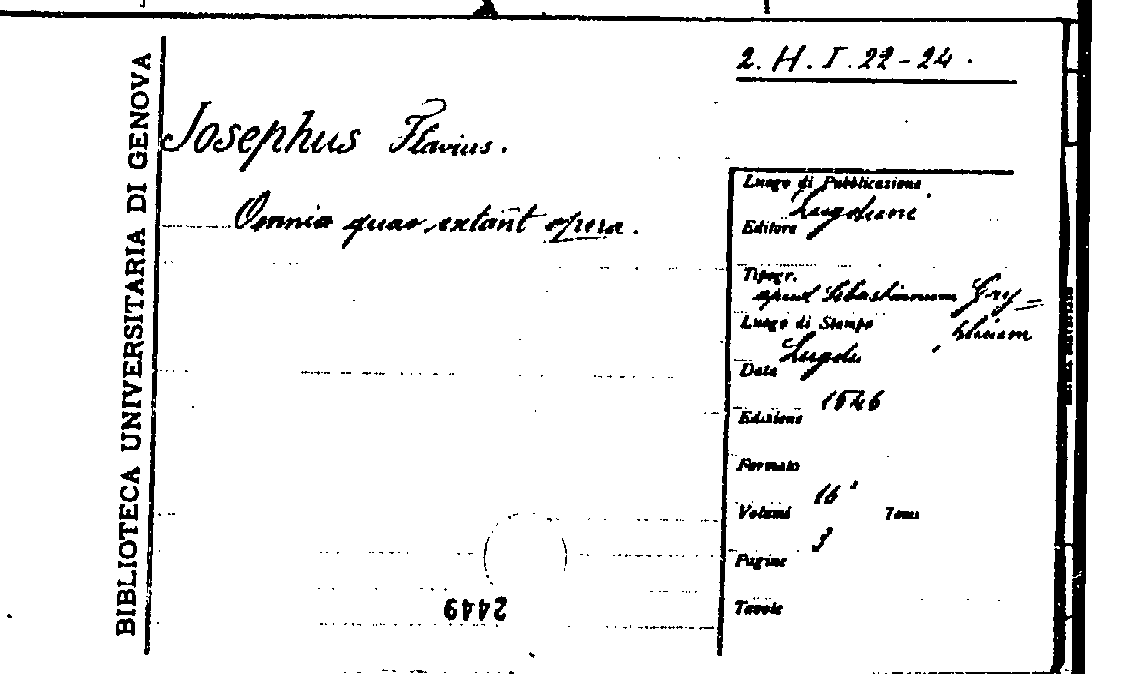 2. H. I. 22-24.
BIBLIOTECA UNIVERSITARIA DI GENOVA
Josephus Flavius.
Omnia quae extant opera.
Luogo di Pubblicazione
Lugduni
Editore
Tipogr.
apud Sebastianum Gry=
phium
Luogo di Stampa
Lugdu
Data
1546
Edizione
Formato
16°
Volumi Tomi
3
Pagine
Tavole
2449